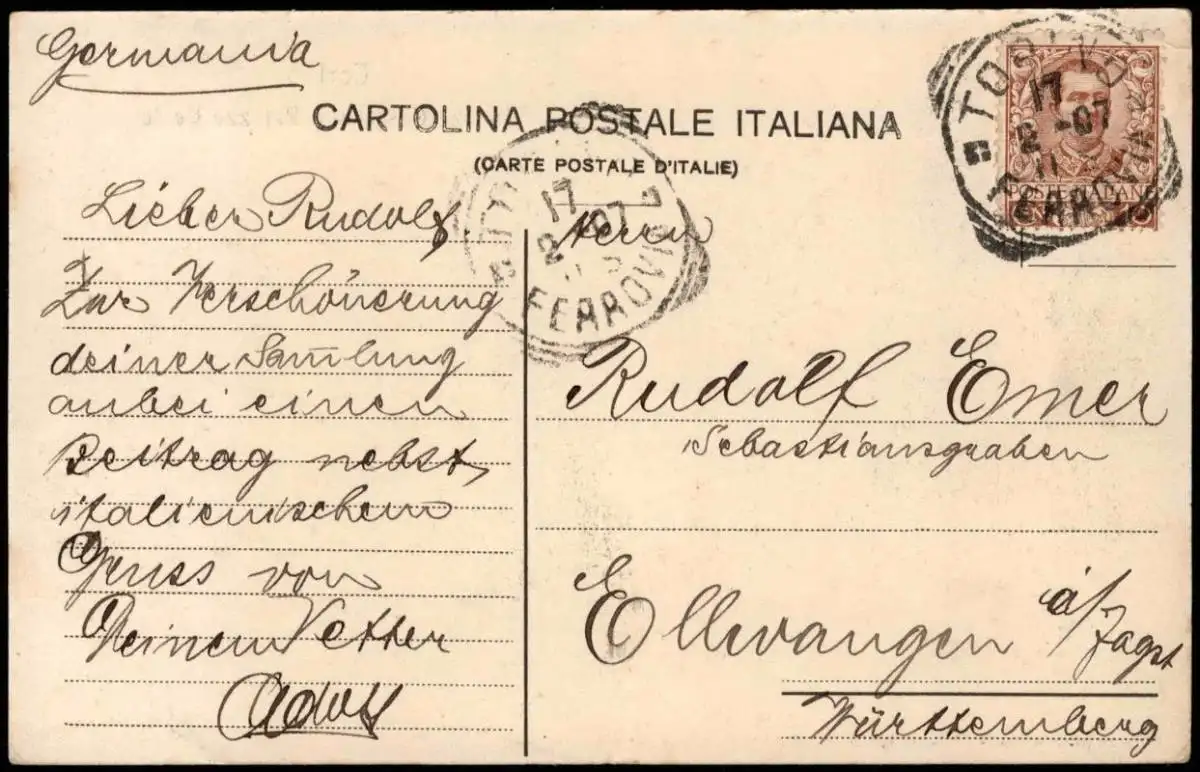 Germania
CARTOLINA POSTALE ITALIANA
(CARTE POSTALE D'ITALIE)
TORINO
17
2 -07
11
FERROVIA
POSTE ITALIANE
17
2 07
FERROVIA
Lieber Rudolf
Zur Verschönerung
deiner Sam̄lung
anbei einen
Beitrag nebst
italienischem
Gruss von
Deinem Vetter
Adolf
Herrn
Rudolf Emer
Sebastiansgraben
Ellwangen a/Jagst
Württemberg